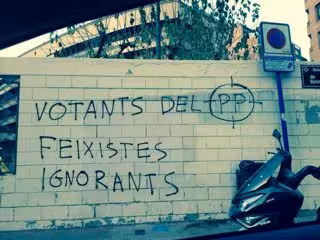 VOTANTS DEL PP
FEIXISTES
IGNORANTS